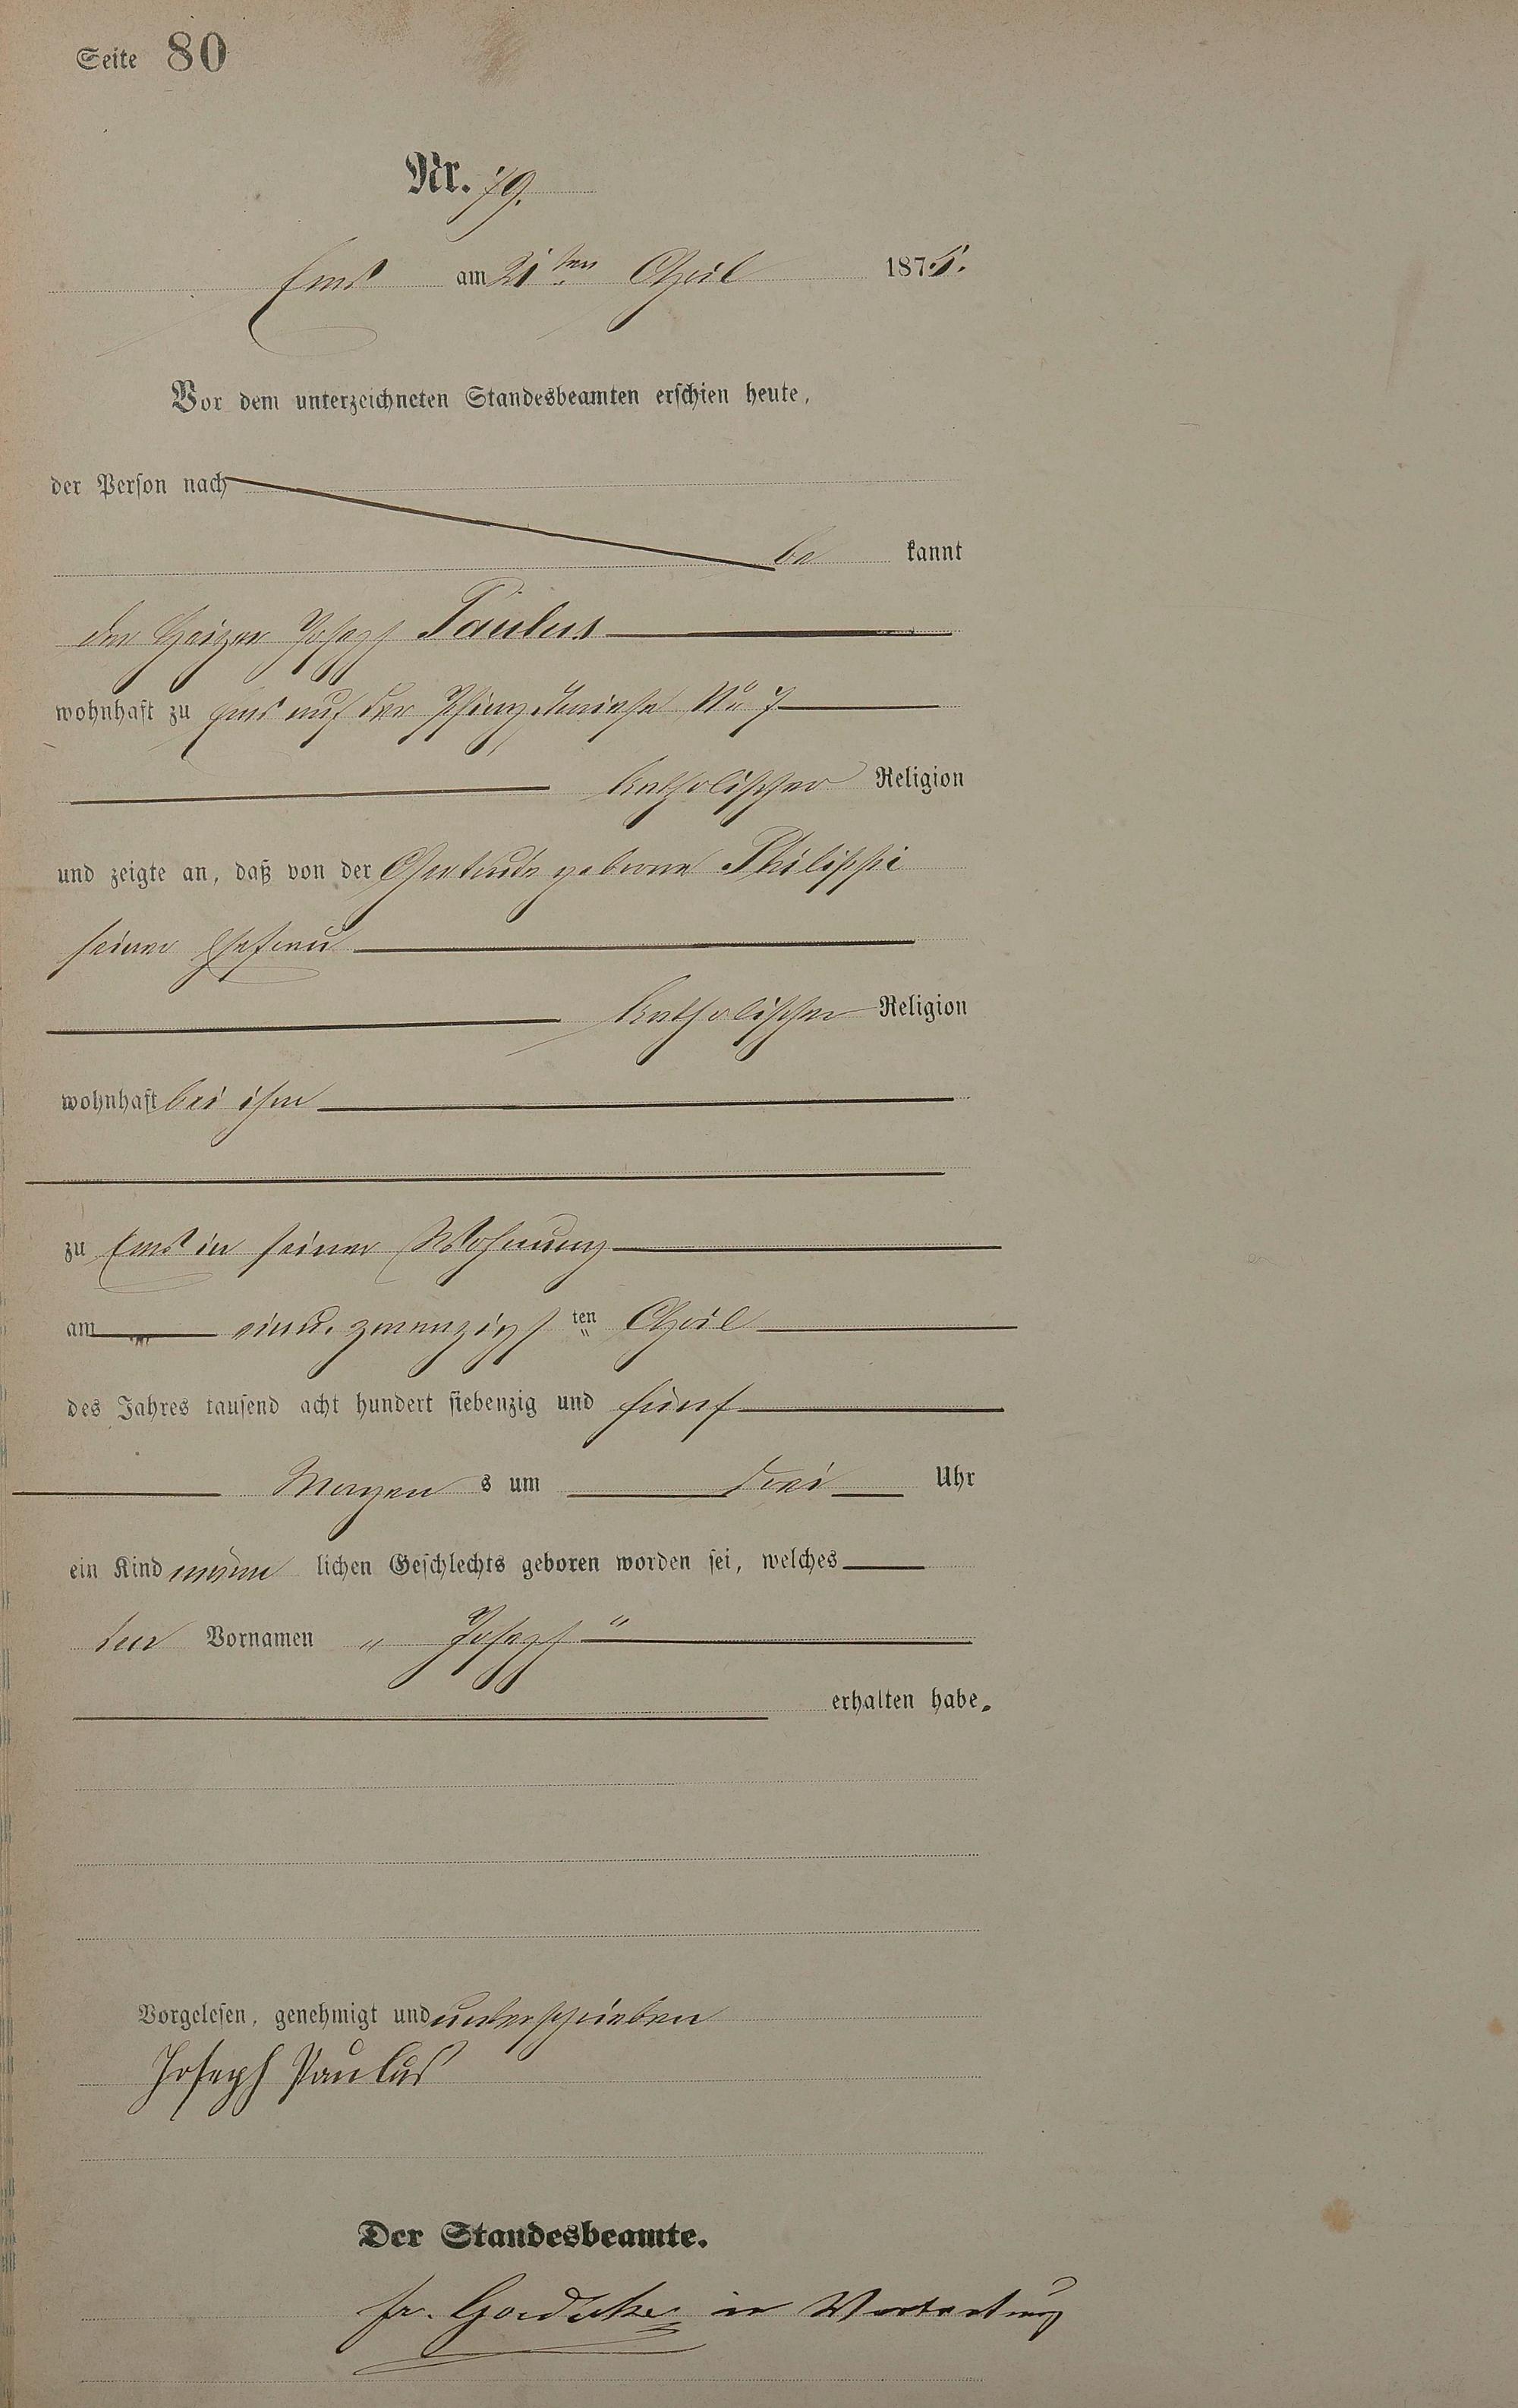 Seite 80
Nr. 79.
Ems am 21ten April 1875.
Vor dem unterzeichneten Standesbeamten erschien heute,
der Person nach
be kannt
der Heizer Joseph Paulus
wohnhaft zu Ems auf der No 7
katholischer Religion
und zeigte an, daß von der Gertrude geborene Philippi
seiner Ehefrau
katholischer Religion
wohnhaft bei ihm
zu Ems in seiner Wohnung
am einu. zwanzigsten April
des Jahres tausend acht hundert siebenzig und fünf
Morgen s um drei Uhr
ein Kind männ lichen Geschlechts geboren worden sei, welches
den Vornamen „ Joseph "
erhalten habe.
Vorgelesen, genehmigt und unterschrieben
Joseph Paulus
Der Standesbeamte.
in Vertretung